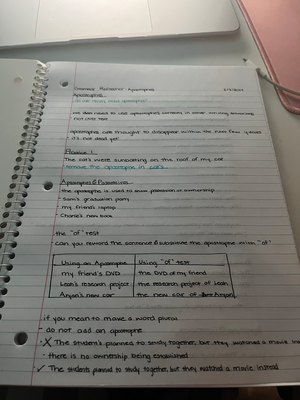 Grammar Resource: Apostrophes
Apostrophes
do we really need apostrophes?
we don't need to use apostrophes
not apostrophes are thought to disappear within the next few years
- it's not dead yet!
Practice 1
The cat's were sunbathing on the roof of my car
remove the apostrophe in cat's
Apostrophes & Possessives
the apostrophe is used to show possession or ownership
- Sam's graduation party
- my friend's laptop
- Charlie's new truck
the "of" test
- can you reword the sentence & substitute the apostrophe with "of"
Using an Apostrophe | Using "of" test
my friend's DVD | the DVD of my friend
Leah's research project | the research project of Leah
Aryan's new car | the new car of Aryan
if you mean to make a word plural
- do not add an apostrophe
X The student's planned to study together, but they watched a movie
- there is no ownership being established
✓ The students planned to study together, but they watched a movie instead